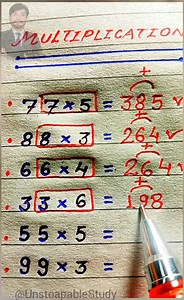 MULTIPLICATION
77×5 = 385
88×3 = 264
66×4 = 264
33×6 = 198
55×5 =
99×3 =
@UnstoapableStudy